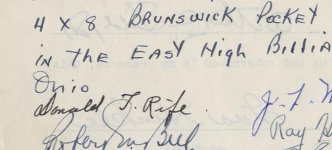 4 X 8 BRUNSWICK POCKET
IN THE EAST HIGH BILLIA
OHIO
Donald F. Rife.
J. L.
Robert M Bell
Ray